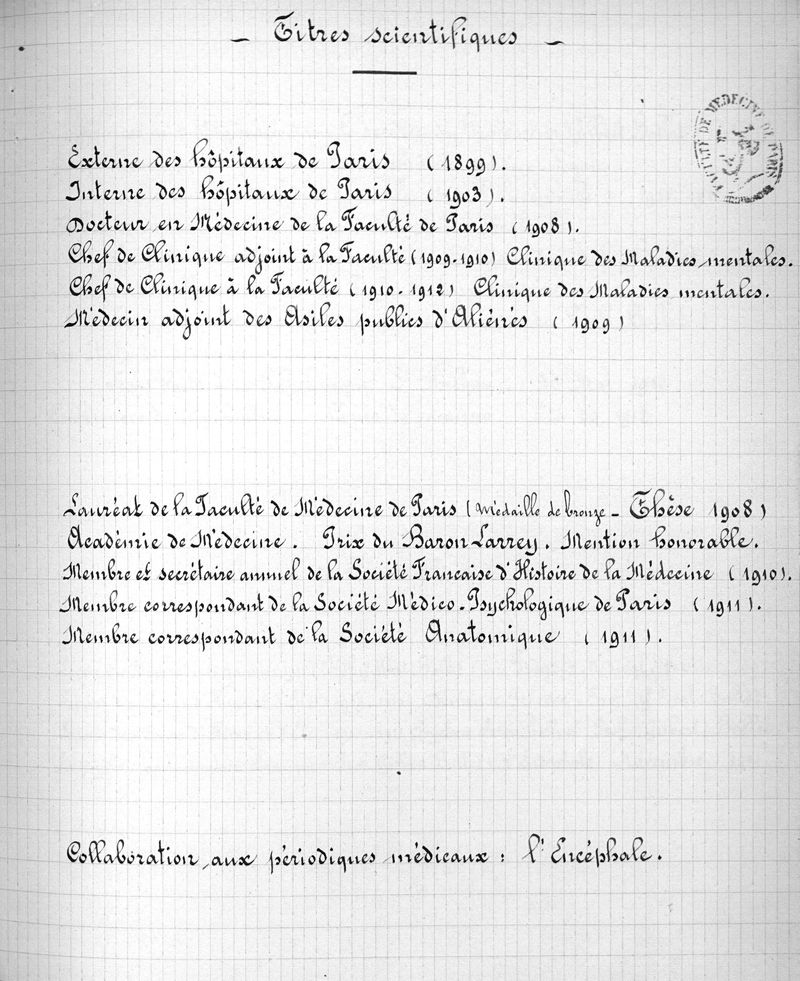 — Titres scientifiques —
FACULTÉ DE MEDECINE DE PARIS
Externe des hôpitaux de Paris (1899).
Interne des hôpitaux de Paris (1903).
Docteur en Médecine de la Faculté de Paris (1908).
Chef de Clinique adjoint à la Faculté (1909-1910) Clinique des Maladies mentales.
Chef de Clinique à la Faculté (1910-1912) Clinique des Maladies mentales.
Médecin adjoint des Asiles publics d'Aliénés (1909)
Lauréat de la Faculté de Médecine de Paris (Médaille de bronze - Thèse 1908)
Académie de Médecine. Prix du Baron Larrey. Mention honorable.
Membre et secrétaire annuel de la Société Française d'Histoire de la Médecine (1910).
Membre correspondant de la Société Médico-Psychologique de Paris (1911).
Membre correspondant de la Société Anatomique (1911).
Collaboration aux périodiques médicaux : l'Encéphale.